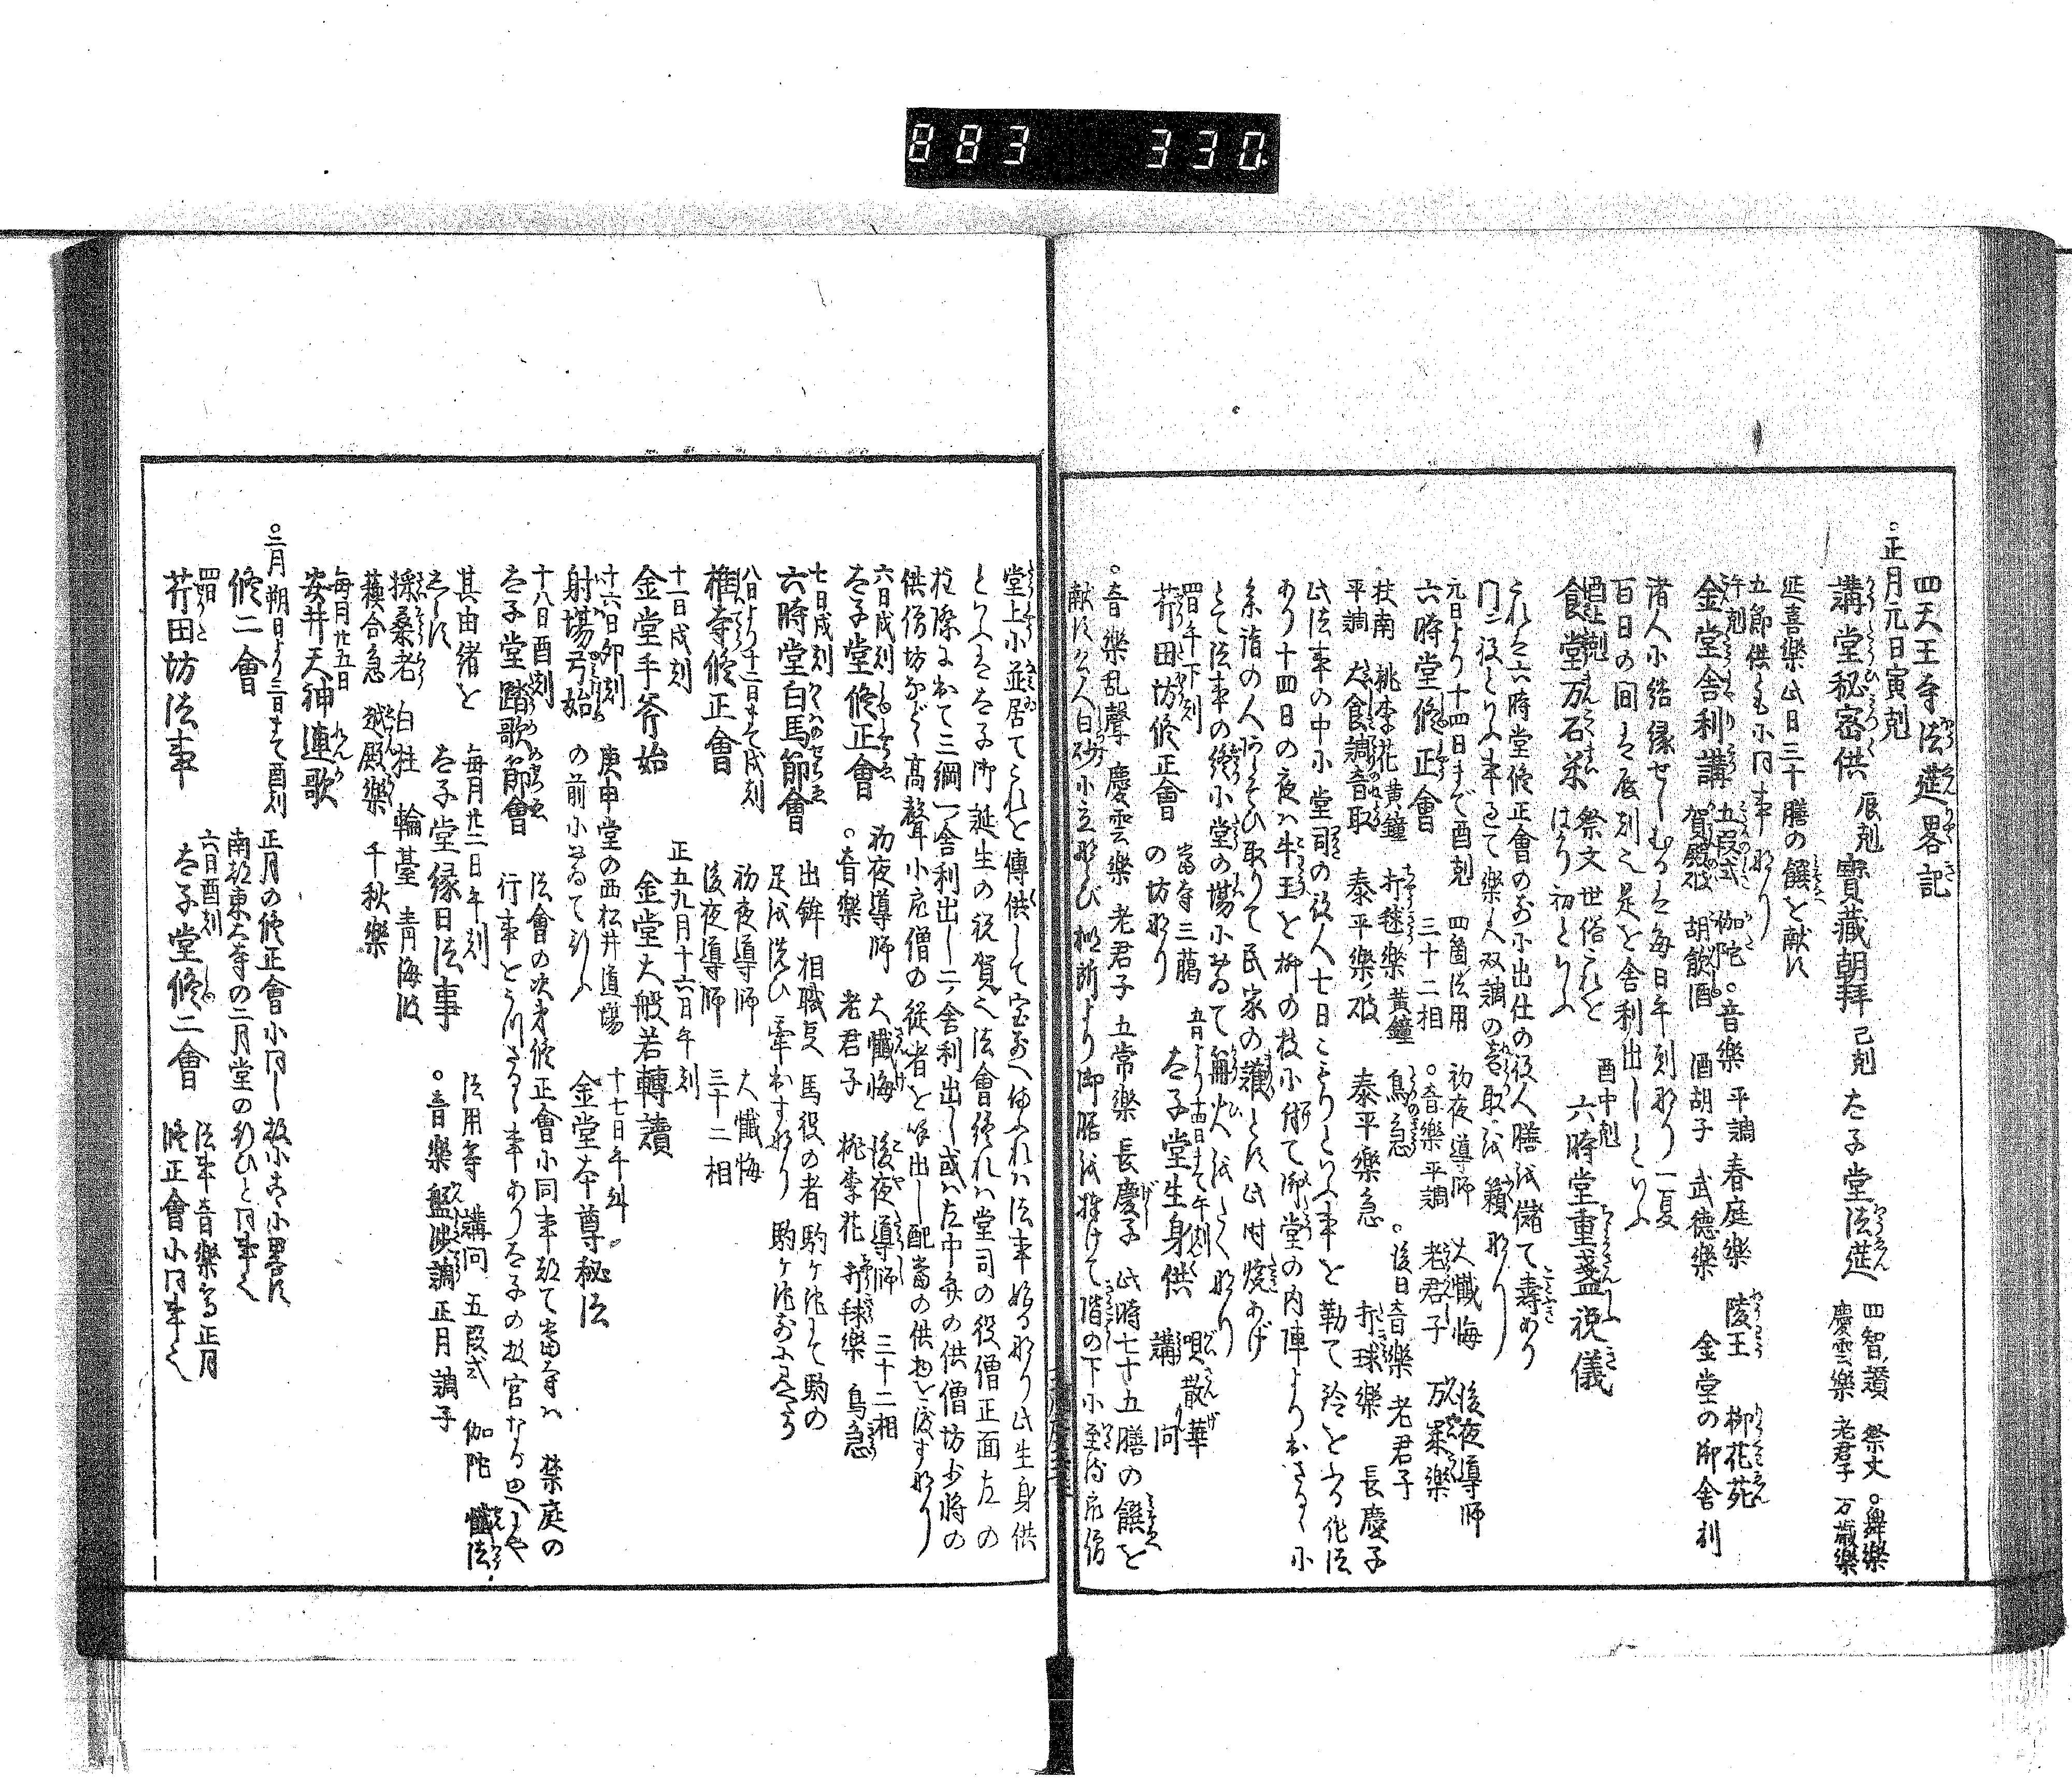 883 330
四天王寺法莚畧記
。正月元日寅剋
講堂秘密供 辰剋 寳藏朝拝 已剋 太子堂法莚 四智讃 祭文 。舞樂
慶雲樂 老君子 万歳樂
延喜樂 此日三十膳の饌を献ず
五節供も小同事なり
午剋
金堂舎利講 五段式 伽陀 。音樂 平調 春庭樂 陵王 柳花苑
賀殿破 胡飲酒 酒胡子 武德樂 金堂の御舎利
諸人小結縁せしむる是毎日午刻なり一夏
百日の間は辰刻之是を舎利出しといふ
酉上剋
食堂万石米 祭文世俗これを
はかり初といふ
酉中剋
六時堂重盞祝儀
これは六時堂修正會のお小出仕の役人膳を儲て壽あり
門二役といふ事ありて樂人双調の音取を續なり
元日より十四日まで酉剋
六時堂修正會 四箇法用 初夜導師 大懺悔 後夜導師
三十二相 。音樂平調 老君子 万歳樂
扶南 桃李花黄鐘 打毬樂黄鐘 鳥急 。後日音樂 老君子
平調 大食調音取 泰平樂破 泰平樂急 打球樂 長慶子
此法事の中小堂司の役人七日こもりといふ事を勤て鈴をふる作法
あり十四日の夜ハ牛王を柳の枝小付て御堂の内陣より出さるゝ小
参詣の人あらそひ取りて民家の護とす此时燒あげ
とて法事の終小堂の場小おゐて舞火をたく也
四日午下刻
芹田坊修正會 當寺三﨟
の坊なり
五日より十四日まて午剋
太子堂生身供 唄散華
講問
。音樂乱聲 慶雲樂 老君子 五常樂 長慶子 此時七十五膳の饌を
献ず公人白砂小立ならび楓所より御膳を捧けて階の下小至時序僧
堂上小並居てこれを傳供して宝前へ備ふれハ法事始るなり此生身供
といふは太子御誕生の祝賀之法會終れハ堂司の役僧正面左の
柱際よおて三綱一ﾉ舎利出し二ﾉ舎利出し或ハ左中弁の供僧坊少将の
供僧坊など高聲小序僧の從者を呼出し配當の供物を渡すなり
六日戌刻
太子堂修正會 初夜導師 大懺悔 後夜導師 三十二相
。音樂 老君子 桃李花 打毬樂 鳥急
七日戌刻
六時堂白馬節會 出鉾 相職支 馬役の者駒ヶ池にて駒の
足を洗ひ牽出すなり 駒ヶ池前に見へたり
八日より十二日まて戌刻
権寺修正會 初夜導師 大懺悔
後夜導師 三十二相
十一日戌刻
金堂手斧始 正五九月十六日午刻
金堂大般若轉讀
十六日卯刻
射場弓始 庚申堂の西松井道場
の前小おゐて行ふ
十七日午斜。
金堂夲尊秘法
十八日酉刻
太子堂踏歌節會 法會の次㐧修正會小同事却て當寺ハ 禁庭の
行事をうつさるゝ事あり太子の故官なる由へしや
其由緒を
しらず 毎月廿二日午刻
太子堂縁日法事 法用等 講问 五段式 伽陀 懺法
。音樂盤渉調正月調子
採桑老 白柱 輪䑓 青海波
蘓合急 越殿樂 千秋樂
毎月廿五日
安井天神連歌
。二月朔日より三日まて酉刻
修二會 正月の修正會小同し故小こゝ小畧す
南都東大寺の二月堂の行ひと同事之
四日
芹田坊法事 六日酉刻
太子堂修二會 法事音樂等正月
修正會小同事之